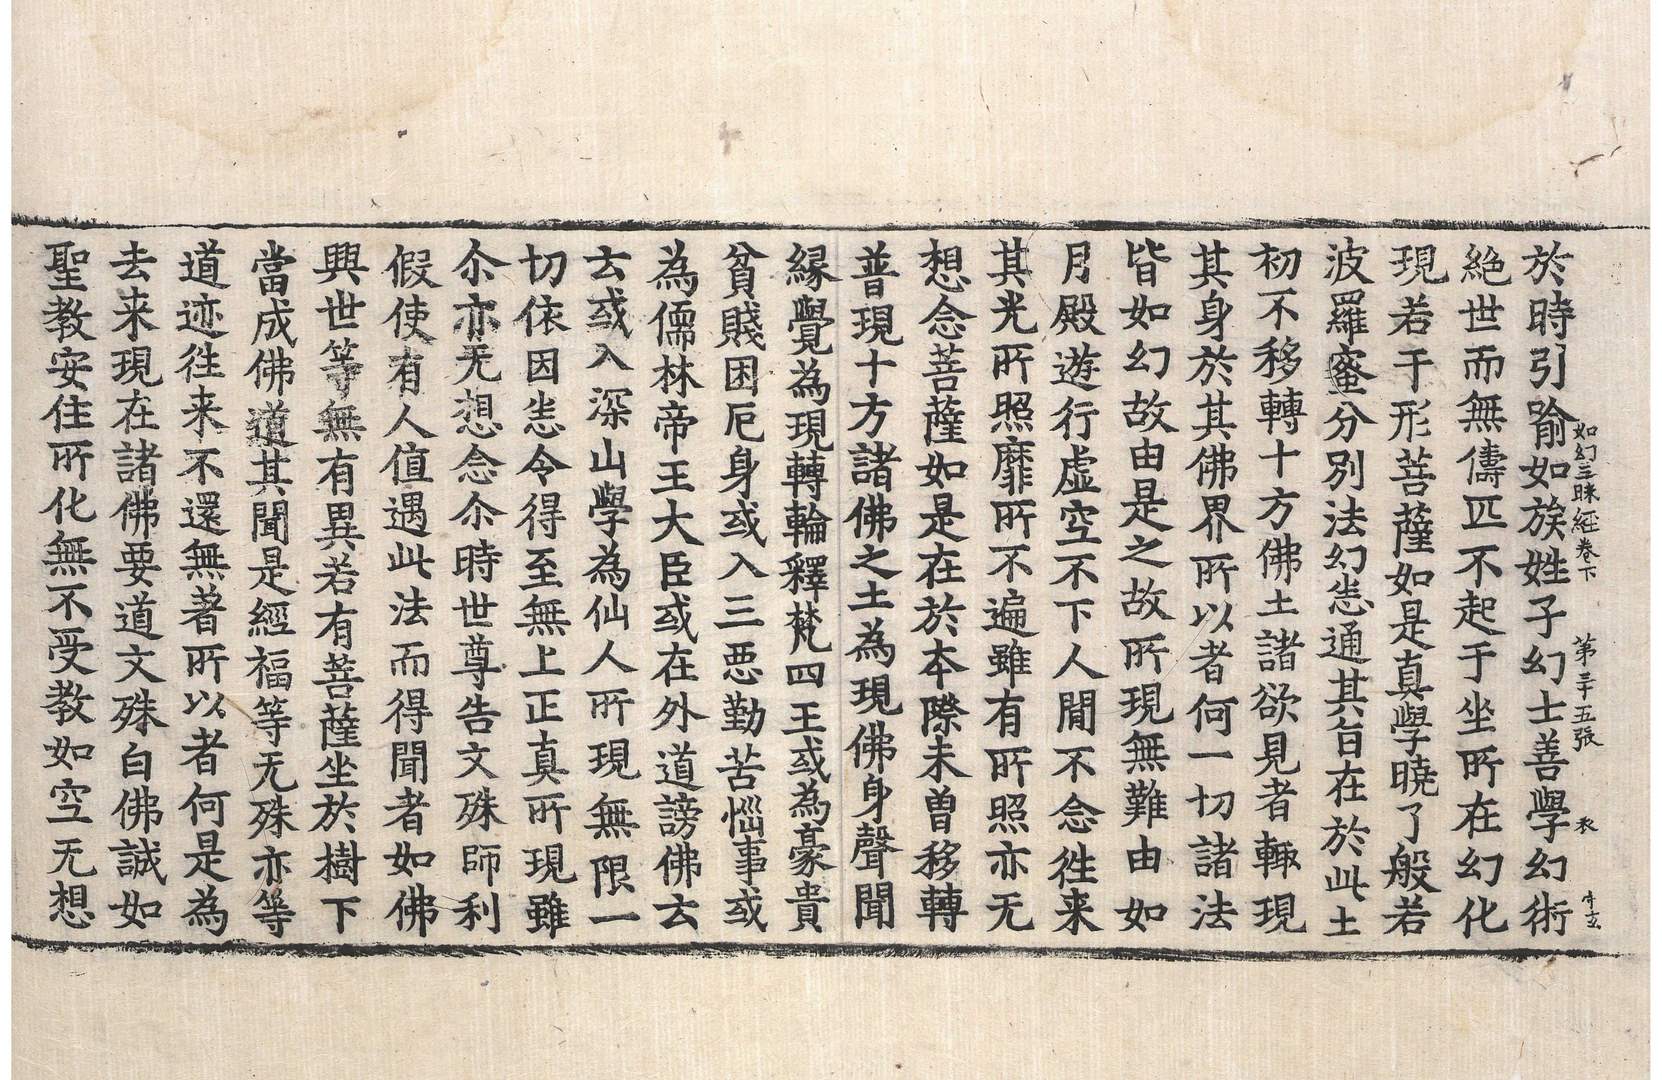 如幻三昧經卷下　第三十五張　衣
於時引喻如族姓子幻士善學幻術
絕世而無儔匹不起于坐所在幻化
現若干形菩薩如是真學曉了般若
波羅蜜分別法幻恙通其自在於此土
初不移轉十方佛土諸欲見者輙現
其身於其佛界所以者何一切諸法
皆如幻故由是之故所現無難由如
月殿遊行虛空不下人間不念徃来
其光所照靡所不遍雖有所照亦无
想念菩薩如是在於本際未曾移轉
普現十方諸佛之土為現佛身聲聞
緣覺為現轉輪釋梵四王或為豪貴
貧賤困厄身或入三惡勤苦惱事或
為儒林帝王大臣或在外道謗佛云
云或入深山學為仙人所現無限一
切依因恙令得至無上正真所現雖
尒亦无想念尒時世尊告文殊師利
假使有人值遇此法而得聞者如佛
興世等無有異若有菩薩坐於樹下
當成佛道其聞是經福等无殊亦等
道迹徃来不還無著所以者何是為
去来現在諸佛要道文殊白佛誠如
聖教安住所化無不受教如空无想